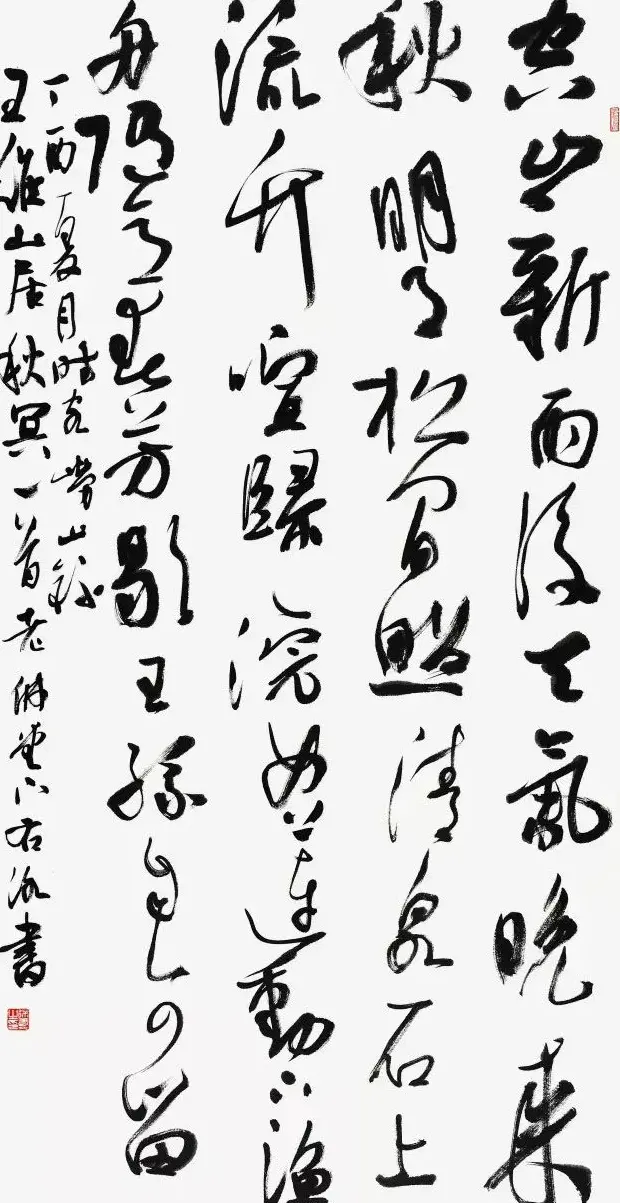 空山新雨後天氣晚來
秋明月松間照清泉石上
流竹喧歸浣女蓮動下漁
舟隨意春芳歇王孫自可留
丁酉夏月時客嶗山
王維山居秋冥一首老書